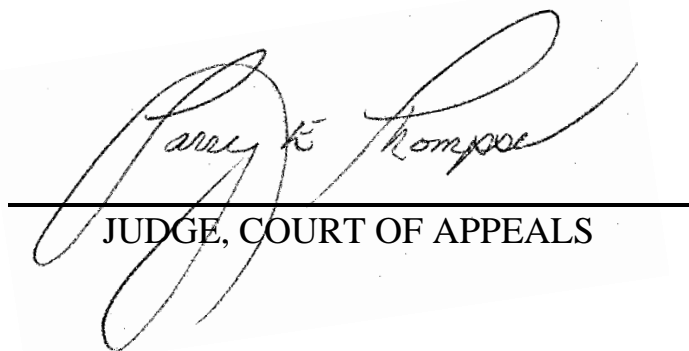 Larry E Thompson
JUDGE, COURT OF APPEALS